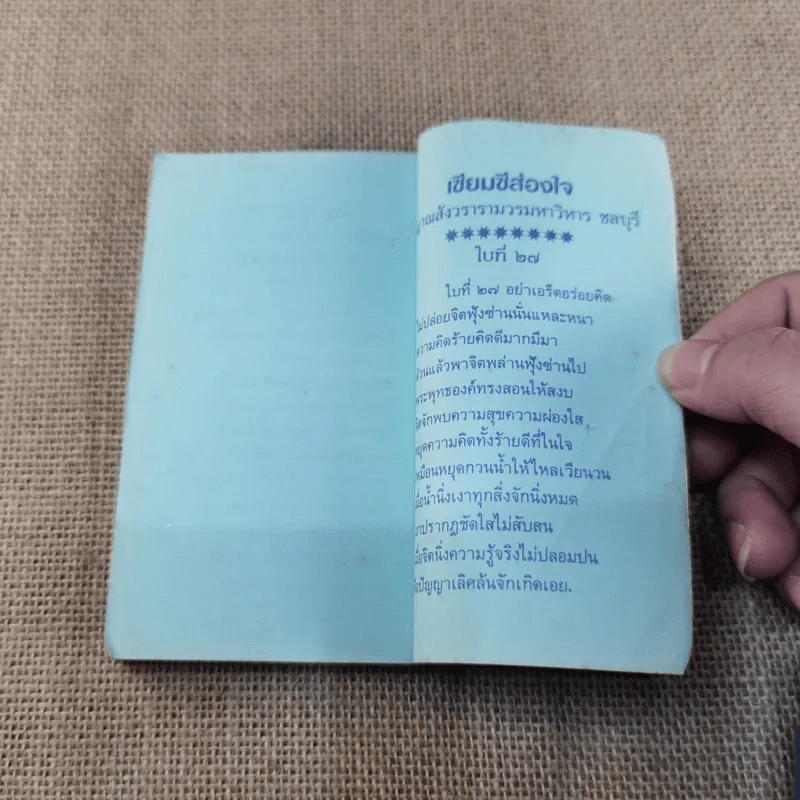 เซียมซีส่องใจ
ญาณสังวรารามวรมหาวิหาร ชลบุรี
✷✷✷✷✷✷✷✷
ใบที่ ๒๗
ใบที่ ๒๗ อย่าเอร็ดอร่อยคิด
ไม่ปล่อยจิตฟุ้งซ่านนั่นแหละหนา
ความคิดร้ายคิดดีมากมีมา
ล้วนแล้วพาจิตพล่านฟุ้งซ่านไป
พระพุทธองค์ทรงสอนให้สงบ
จักพบความสุขความผ่องใส
หยุดความคิดทั้งร้ายดีที่ในใจ
เหมือนหยุดกวนน้ำให้ไหลเวียนวน
เมื่อน้ำนิ่งเงาทุกสิ่งจักนิ่งหมด
เงาปรากฏชัดใสไม่สับสน
เมื่อจิตนิ่งความรู้จริงไม่ปลอมปน
ปัญญาเลิศล้นจักเกิดเอย.